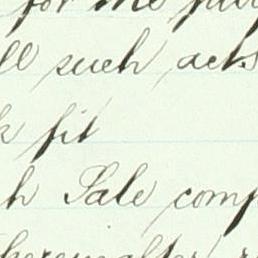 for the pur
ll such acts
k fit
h Sale comp
hereinafter r